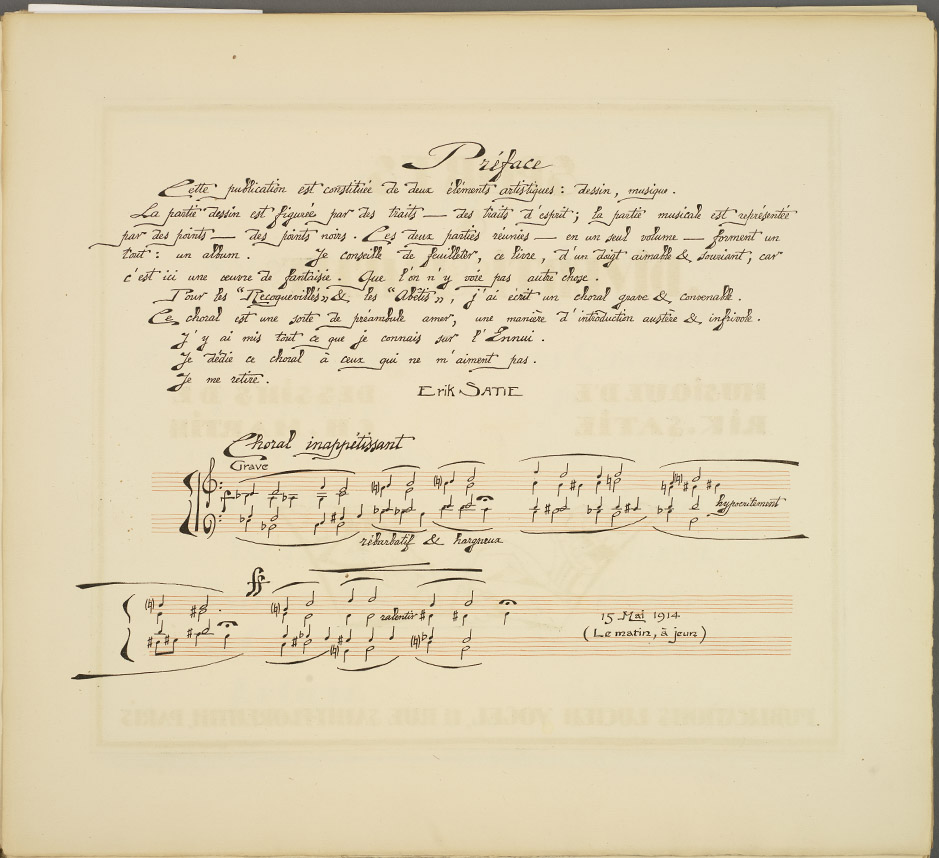 Préface
Cette publication est constituée de deux éléments artistiques : dessin, musique.
La partie dessin est figurée par des traits — des traits d'esprit ; la partie musicale est représentée
par des points — des points noirs. Ces deux parties réunies — en un seul volume — forment un
tout : un album. Je conseille de feuilleter, ce livre, d'un doigt aimable & souriant ; car
c'est ici une œuvre de fantaisie. Que l'on n'y voie pas autre chose.
Pour les "Recoquevillés" & les "Abêtis", j'ai écrit un choral grave & convenable.
Ce choral est une sorte de préambule amer, une manière d'introduction austère & infrivole.
J'y ai mis tout ce que je connais sur l'Ennui.
Je dédie ce choral à ceux qui ne m'aiment pas.
Je me retire.
Erik SATIE
Choral inappétissant
Grave
f
hypocritement
rébarbatif & hargneux
ff
ralentir
15 Mai 1914
(Le matin, à jeun)